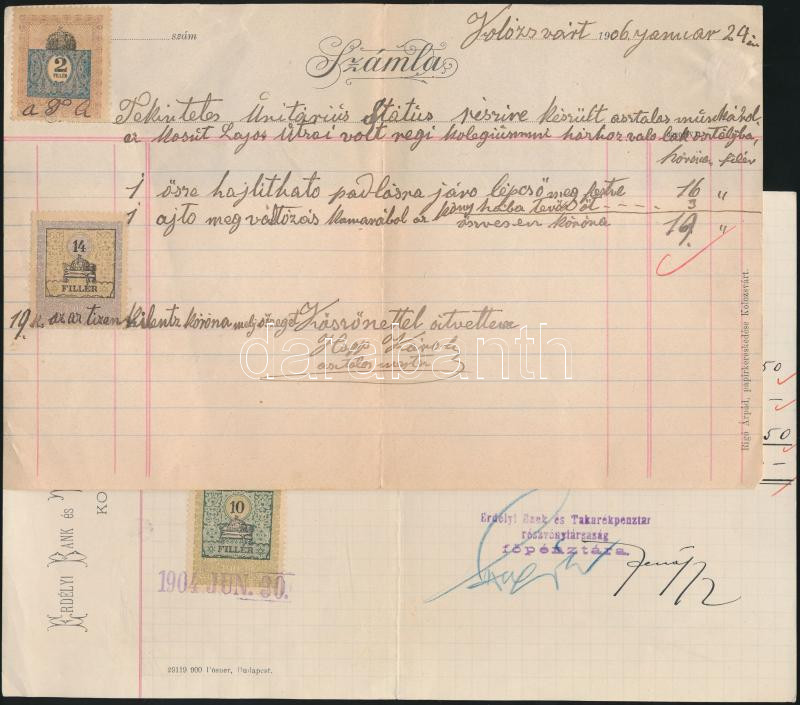 szám
Kolózsvárt 1906 januar 24 én
Számla
2
FILLÉR
Tekintetes Unitárius Státus részire készült asztalos munkából
az Kosut Lajos utzai volt regi kolegiúmni házhoz valo lak osztályba,
koróna filér
1 össze hajlitható padlásra járo lépcső meg festve 16 "
1 ajto meg váltózás kamarából az kony hába tevődöt - - - - 3
összesen koróna 19 "
14
FILLÉR
19. k. az az tizen kilentz koróna mely öszeget Köszönettel átvettem
Károly
asztalos mester
darabanth
Rigó Árpád, papirkereskedése Kolozsvárt.
50
1
50
1
ERDÉLYI BANK ÉS
KO
10
FILLÉR
1904 JUN. 30.
Erdélyi Bank és Takarékpénztár
részvénytársaság
főpénztára.
29119 900 Pósner, Budapest.